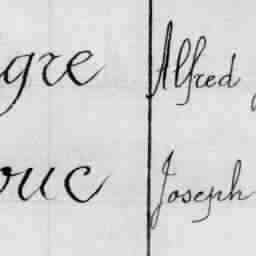 gre Alfred
ouc Joseph